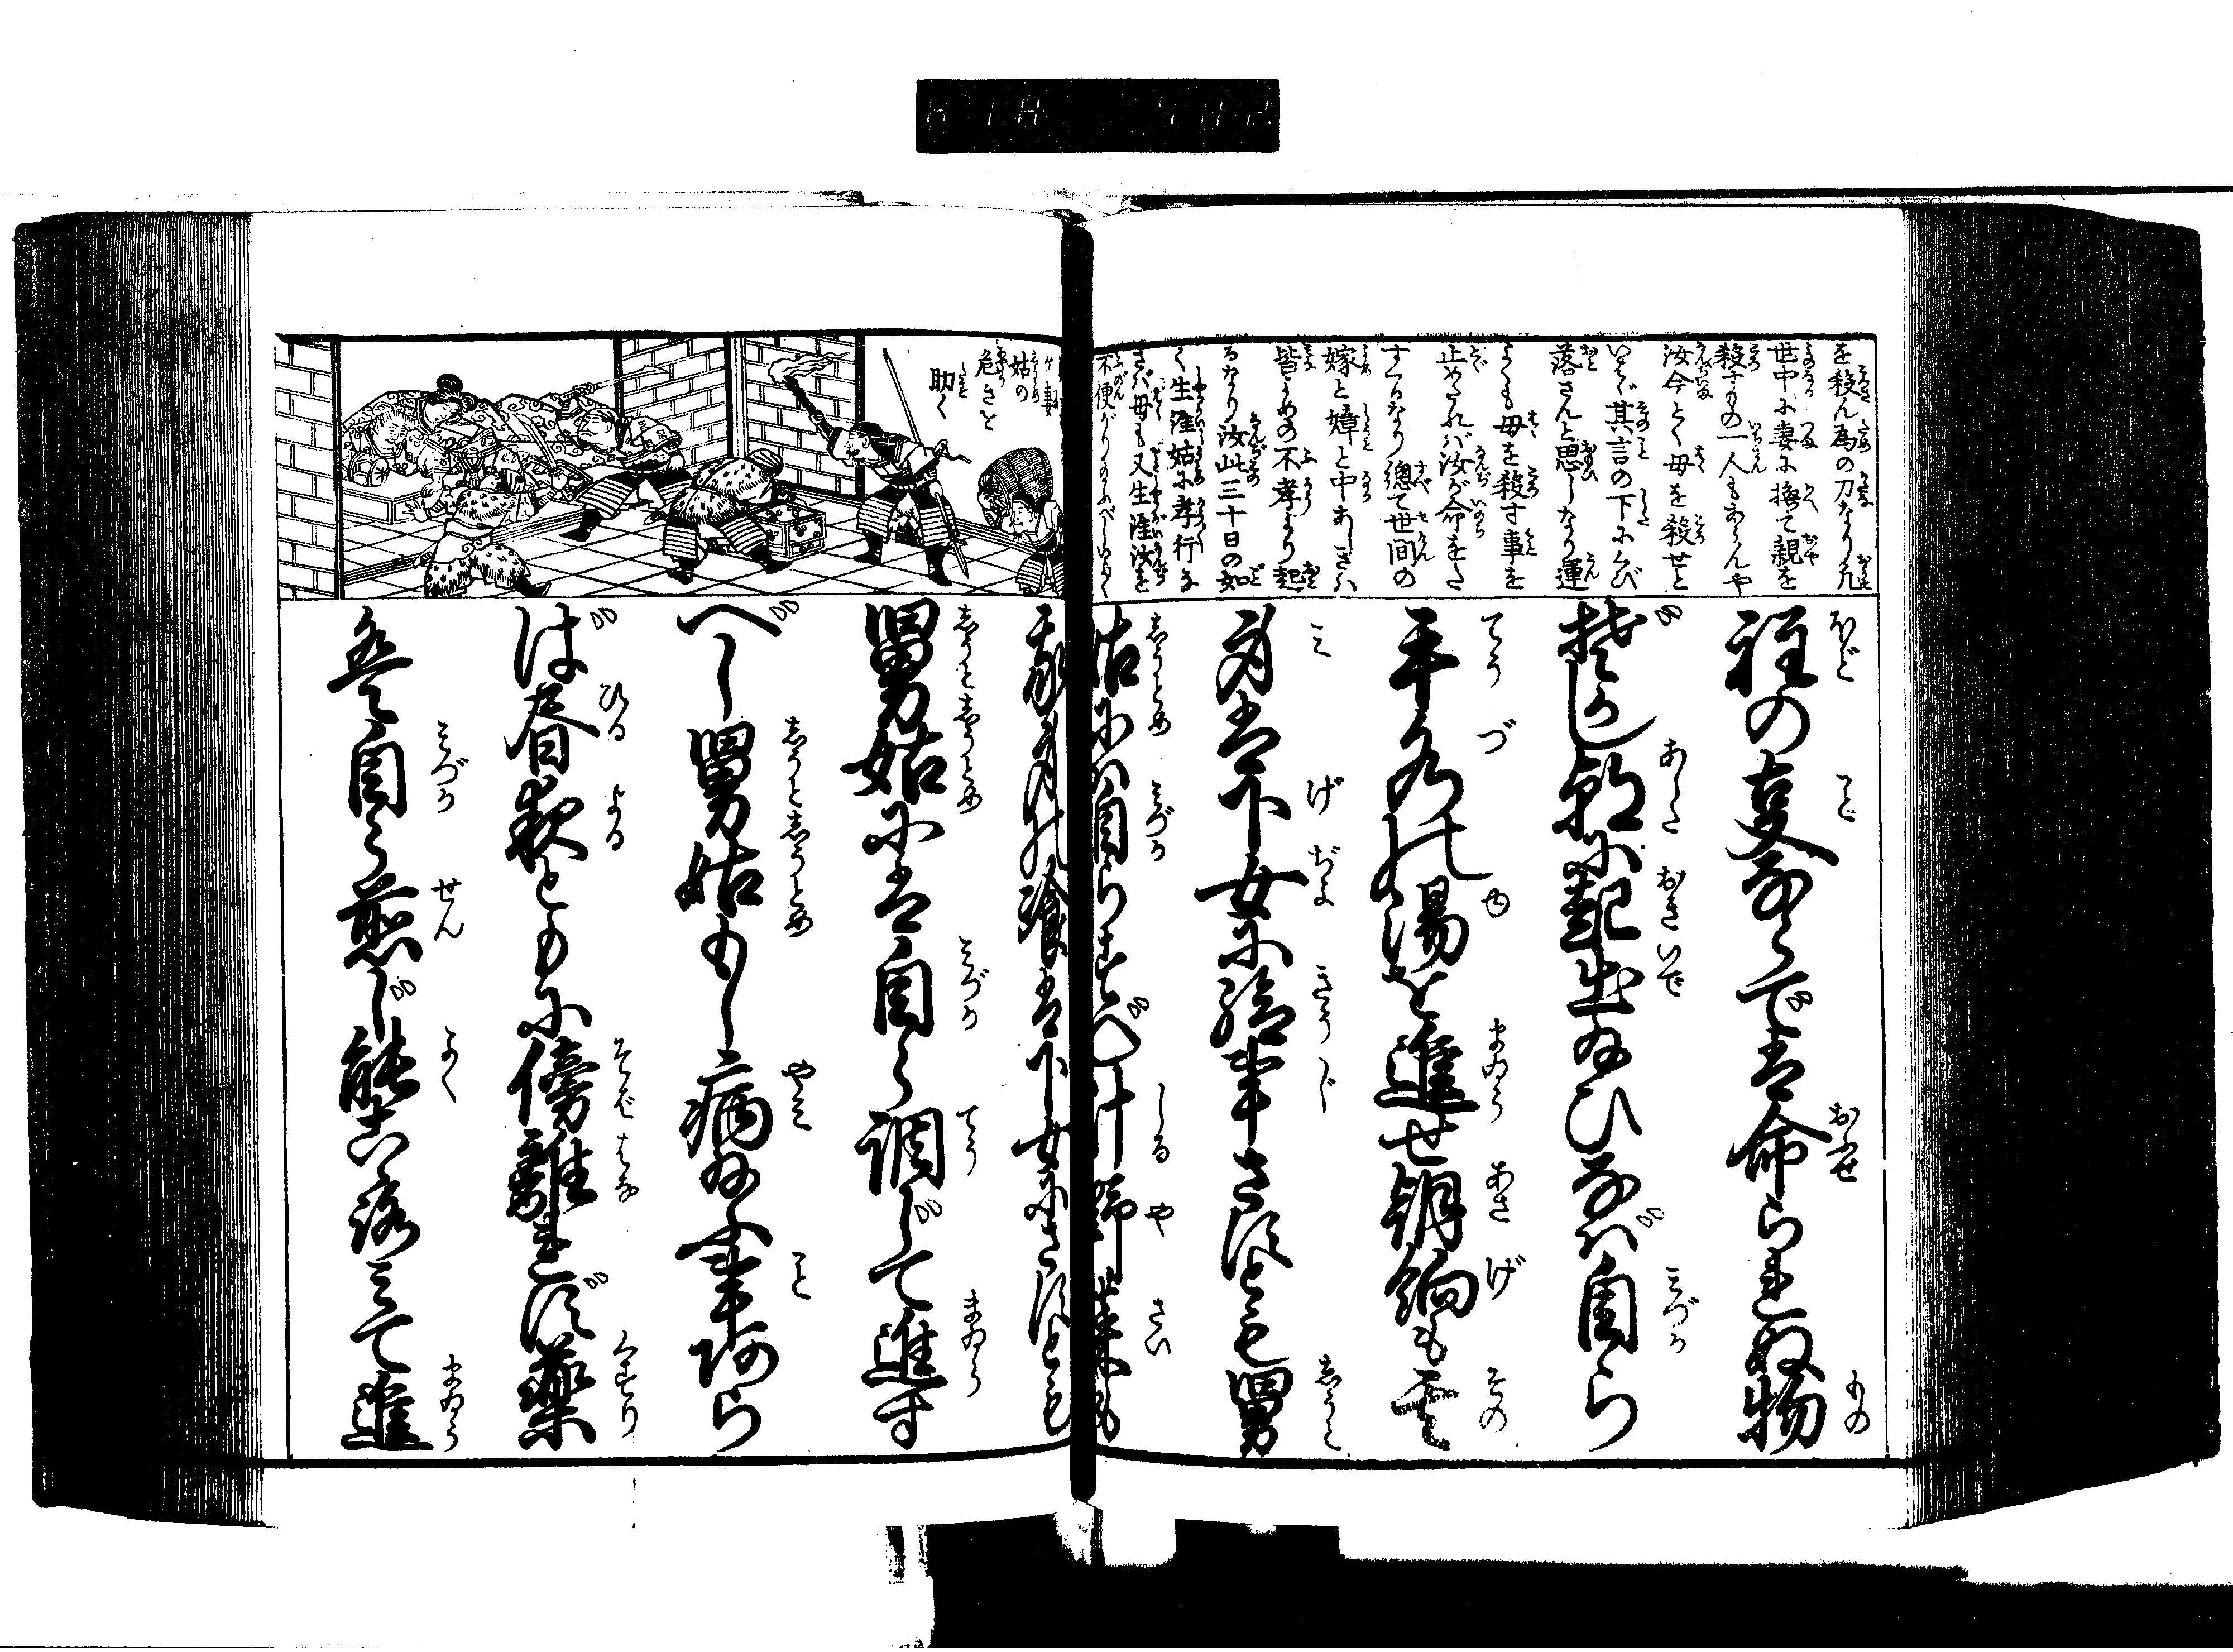 を殺ん為の刀なり凡
世中に妻に換て親を
殺すもの一人もあらんや
汝今とく母を殺せと
いはゞ其言の下にくび
落さんと思しなり運
よくも母を殺す事を
止めたれバ汝が命をた
すくるなり總て世間の
嫁と嫜と中あしきハ
皆よめの不孝より起
るなり汝此三十日の如
く生涯姑に孝行な
さバ母も又生涯汝を
不便がりのふべしいよ〳〵
程の事ならでは命られぬ物
ぞかし朝に起出給ひなば自ら
手水の湯を進せ朝餉も其
身は下女に給事さすとも舅
姑には自らすべし汁野菜も
我身の飡は下女にさすとも
舅姑には自ら調じて進す
べし舅姑もし病給ふ事あら
ば昼夜ともに傍離れず薬
も自ら煎じ能こゝろみて進
妻
姑の
危きを
助く